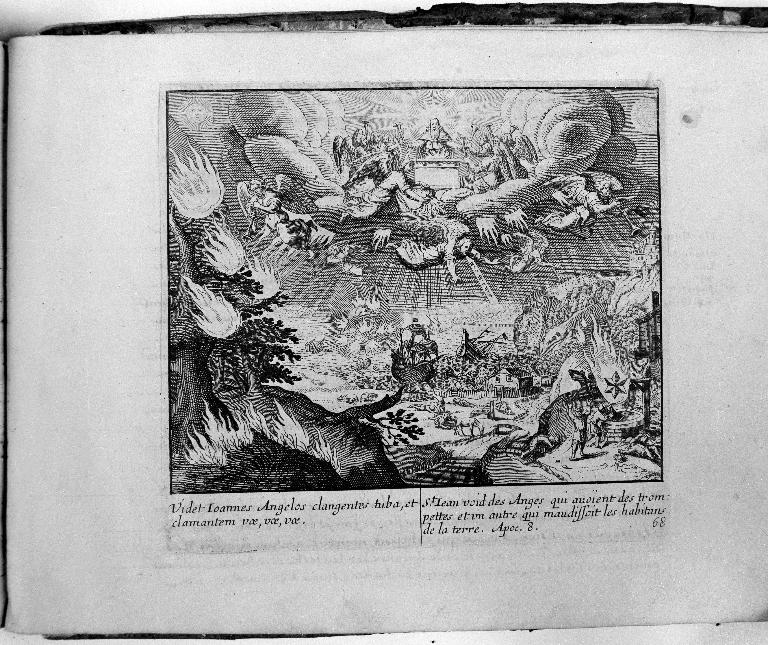 Videt Ioannes Angelos clangentes tuba, et
clamantem væ, væ, væ.
St. Iean void des Anges qui auoient des trom:
pettes et vn autre qui maudissoit les habitans
de la terre. Apoc. 8.
68